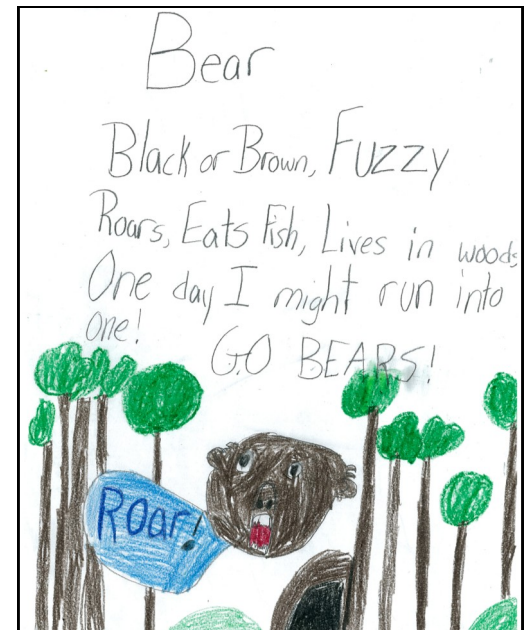 Bear
Black or Brown, Fuzzy
Roars, Eats Fish, Lives in woods
One day I might run into
one!
GO BEARS!
Roar!